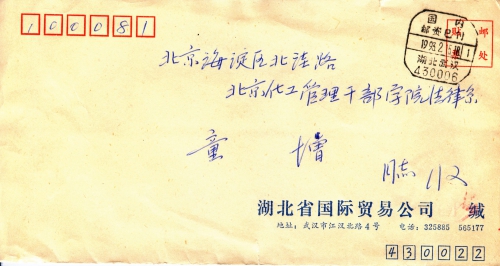 100081
国内
邮资已付
湖北武汉
430006
贴邮
处
北京海淀区北洼路
北京化工管理干部学院法律系
童 收
湖北省国际贸易公司 缄
地址：武汉市江汉北路4号 电话：325885 565177
430022